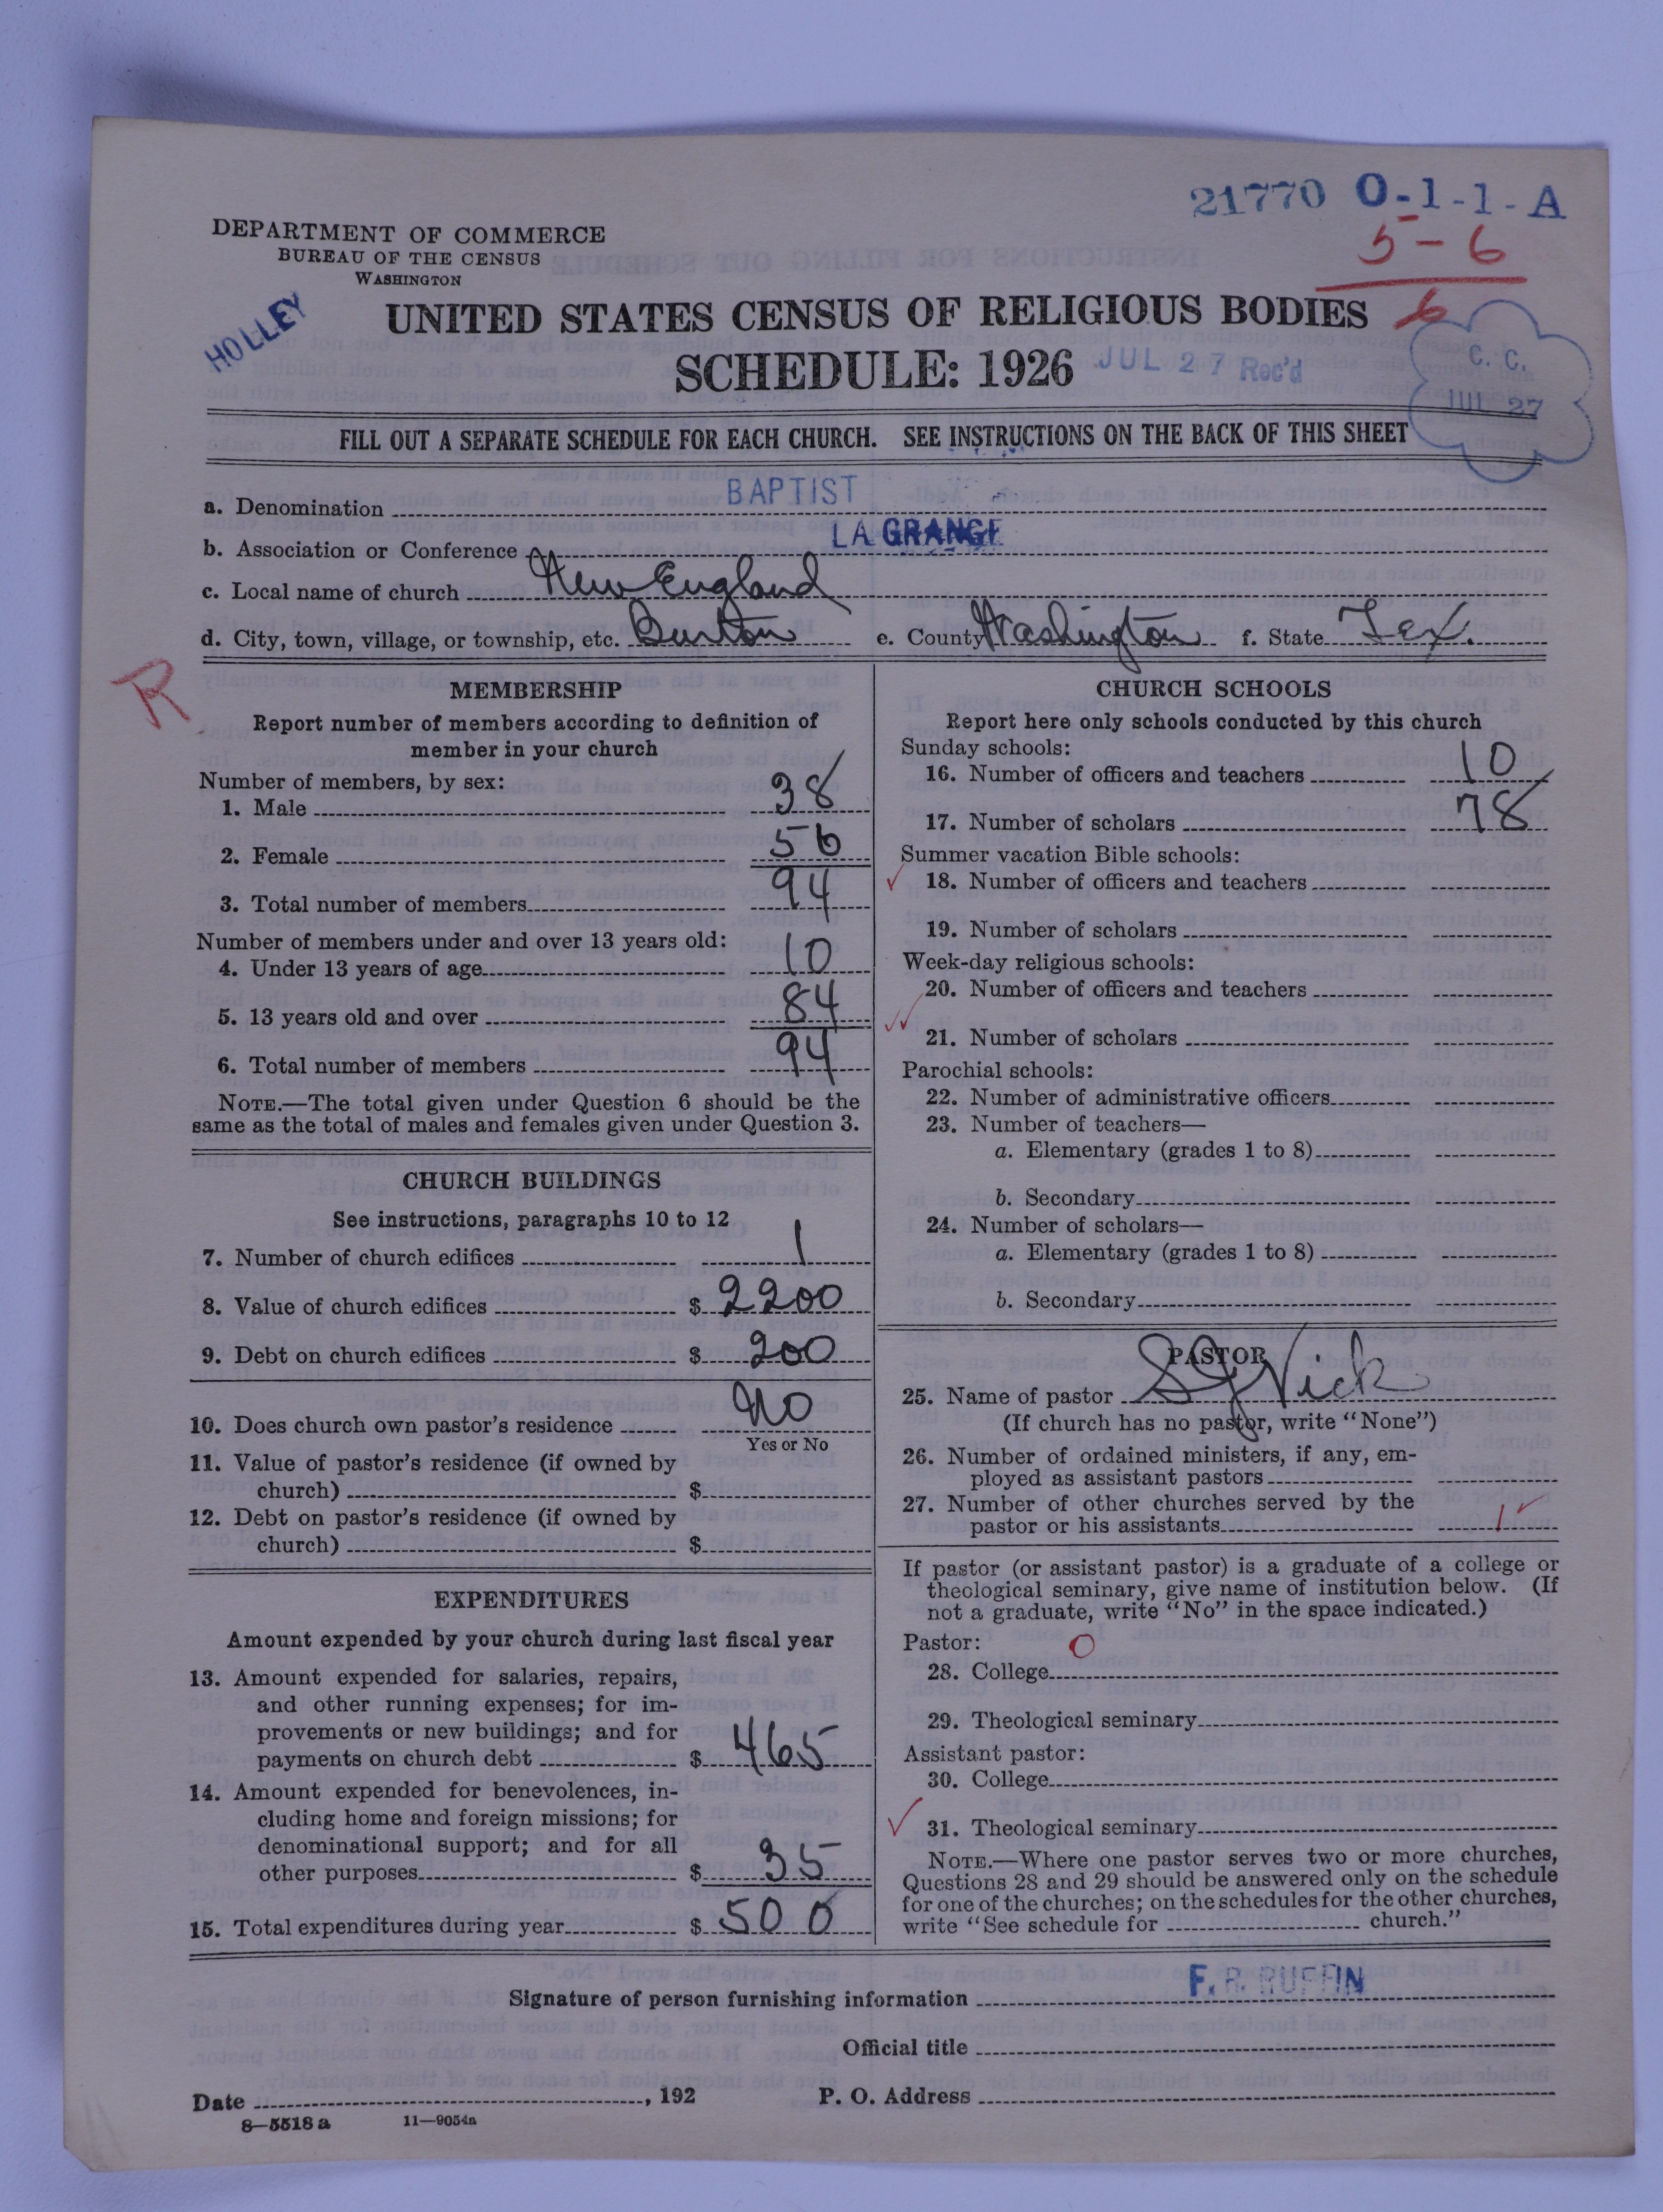 21770 O-1-1-A
5-6
6
DEPARTMENT OF COMMERCE
BUREAU OF THE CENSUS
WASHINGTON
HOLLEY
UNITED STATES CENSUS OF RELIGIOUS BODIES
SCHEDULE: 1926
JUL 27 Rec'd
C. C.
JUL 27
FILL OUT A SEPARATE SCHEDULE FOR EACH CHURCH. SEE INSTRUCTIONS ON THE BACK OF THIS SHEET
a. Denomination BAPTIST
b. Association or Conference LA GRANGE
c. Local name of church New England
d. City, town, village, or township, etc. Burton e. County Washington f. State Tex.
R
MEMBERSHIP
Report number of members according to definition of
member in your church
Number of members, by sex:
1. Male 38
2. Female 56
3. Total number of members 94
Number of members under and over 13 years old:
4. Under 13 years of age 10
5. 13 years old and over 84
6. Total number of members 94
NOTE.—The total given under Question 6 should be the
same as the total of males and females given under Question 3.
CHURCH BUILDINGS
See instructions, paragraphs 10 to 12
7. Number of church edifices 1
8. Value of church edifices $ 2200
9. Debt on church edifices $ 200
10. Does church own pastor's residence No
Yes or No
11. Value of pastor's residence (if owned by
church) $
12. Debt on pastor's residence (if owned by
church) $
EXPENDITURES
Amount expended by your church during last fiscal year
13. Amount expended for salaries, repairs,
and other running expenses; for im-
provements or new buildings; and for
payments on church debt $ 465
14. Amount expended for benevolences, in-
cluding home and foreign missions; for
denominational support; and for all
other purposes $ 35
15. Total expenditures during year $ 500
CHURCH SCHOOLS
Report here only schools conducted by this church
Sunday schools:
16. Number of officers and teachers 10
17. Number of scholars 78
Summer vacation Bible schools:
18. Number of officers and teachers
19. Number of scholars
Week-day religious schools:
20. Number of officers and teachers
21. Number of scholars
Parochial schools:
22. Number of administrative officers
23. Number of teachers—
a. Elementary (grades 1 to 8)
b. Secondary
24. Number of scholars—
a. Elementary (grades 1 to 8)
b. Secondary
PASTOR
25. Name of pastor S G Vick
(If church has no pastor, write "None")
26. Number of ordained ministers, if any, em-
ployed as assistant pastors
27. Number of other churches served by the
pastor or his assistants 1
If pastor (or assistant pastor) is a graduate of a college or
theological seminary, give name of institution below. (If
not a graduate, write "No" in the space indicated.)
Pastor: O
28. College
29. Theological seminary
Assistant pastor:
30. College
31. Theological seminary
NOTE.—Where one pastor serves two or more churches,
Questions 28 and 29 should be answered only on the schedule
for one of the churches; on the schedules for the other churches,
write "See schedule for church."
Signature of person furnishing information F. R. RUFFIN
Official title
Date , 192 P. O. Address
8—5518 a 11—9054a